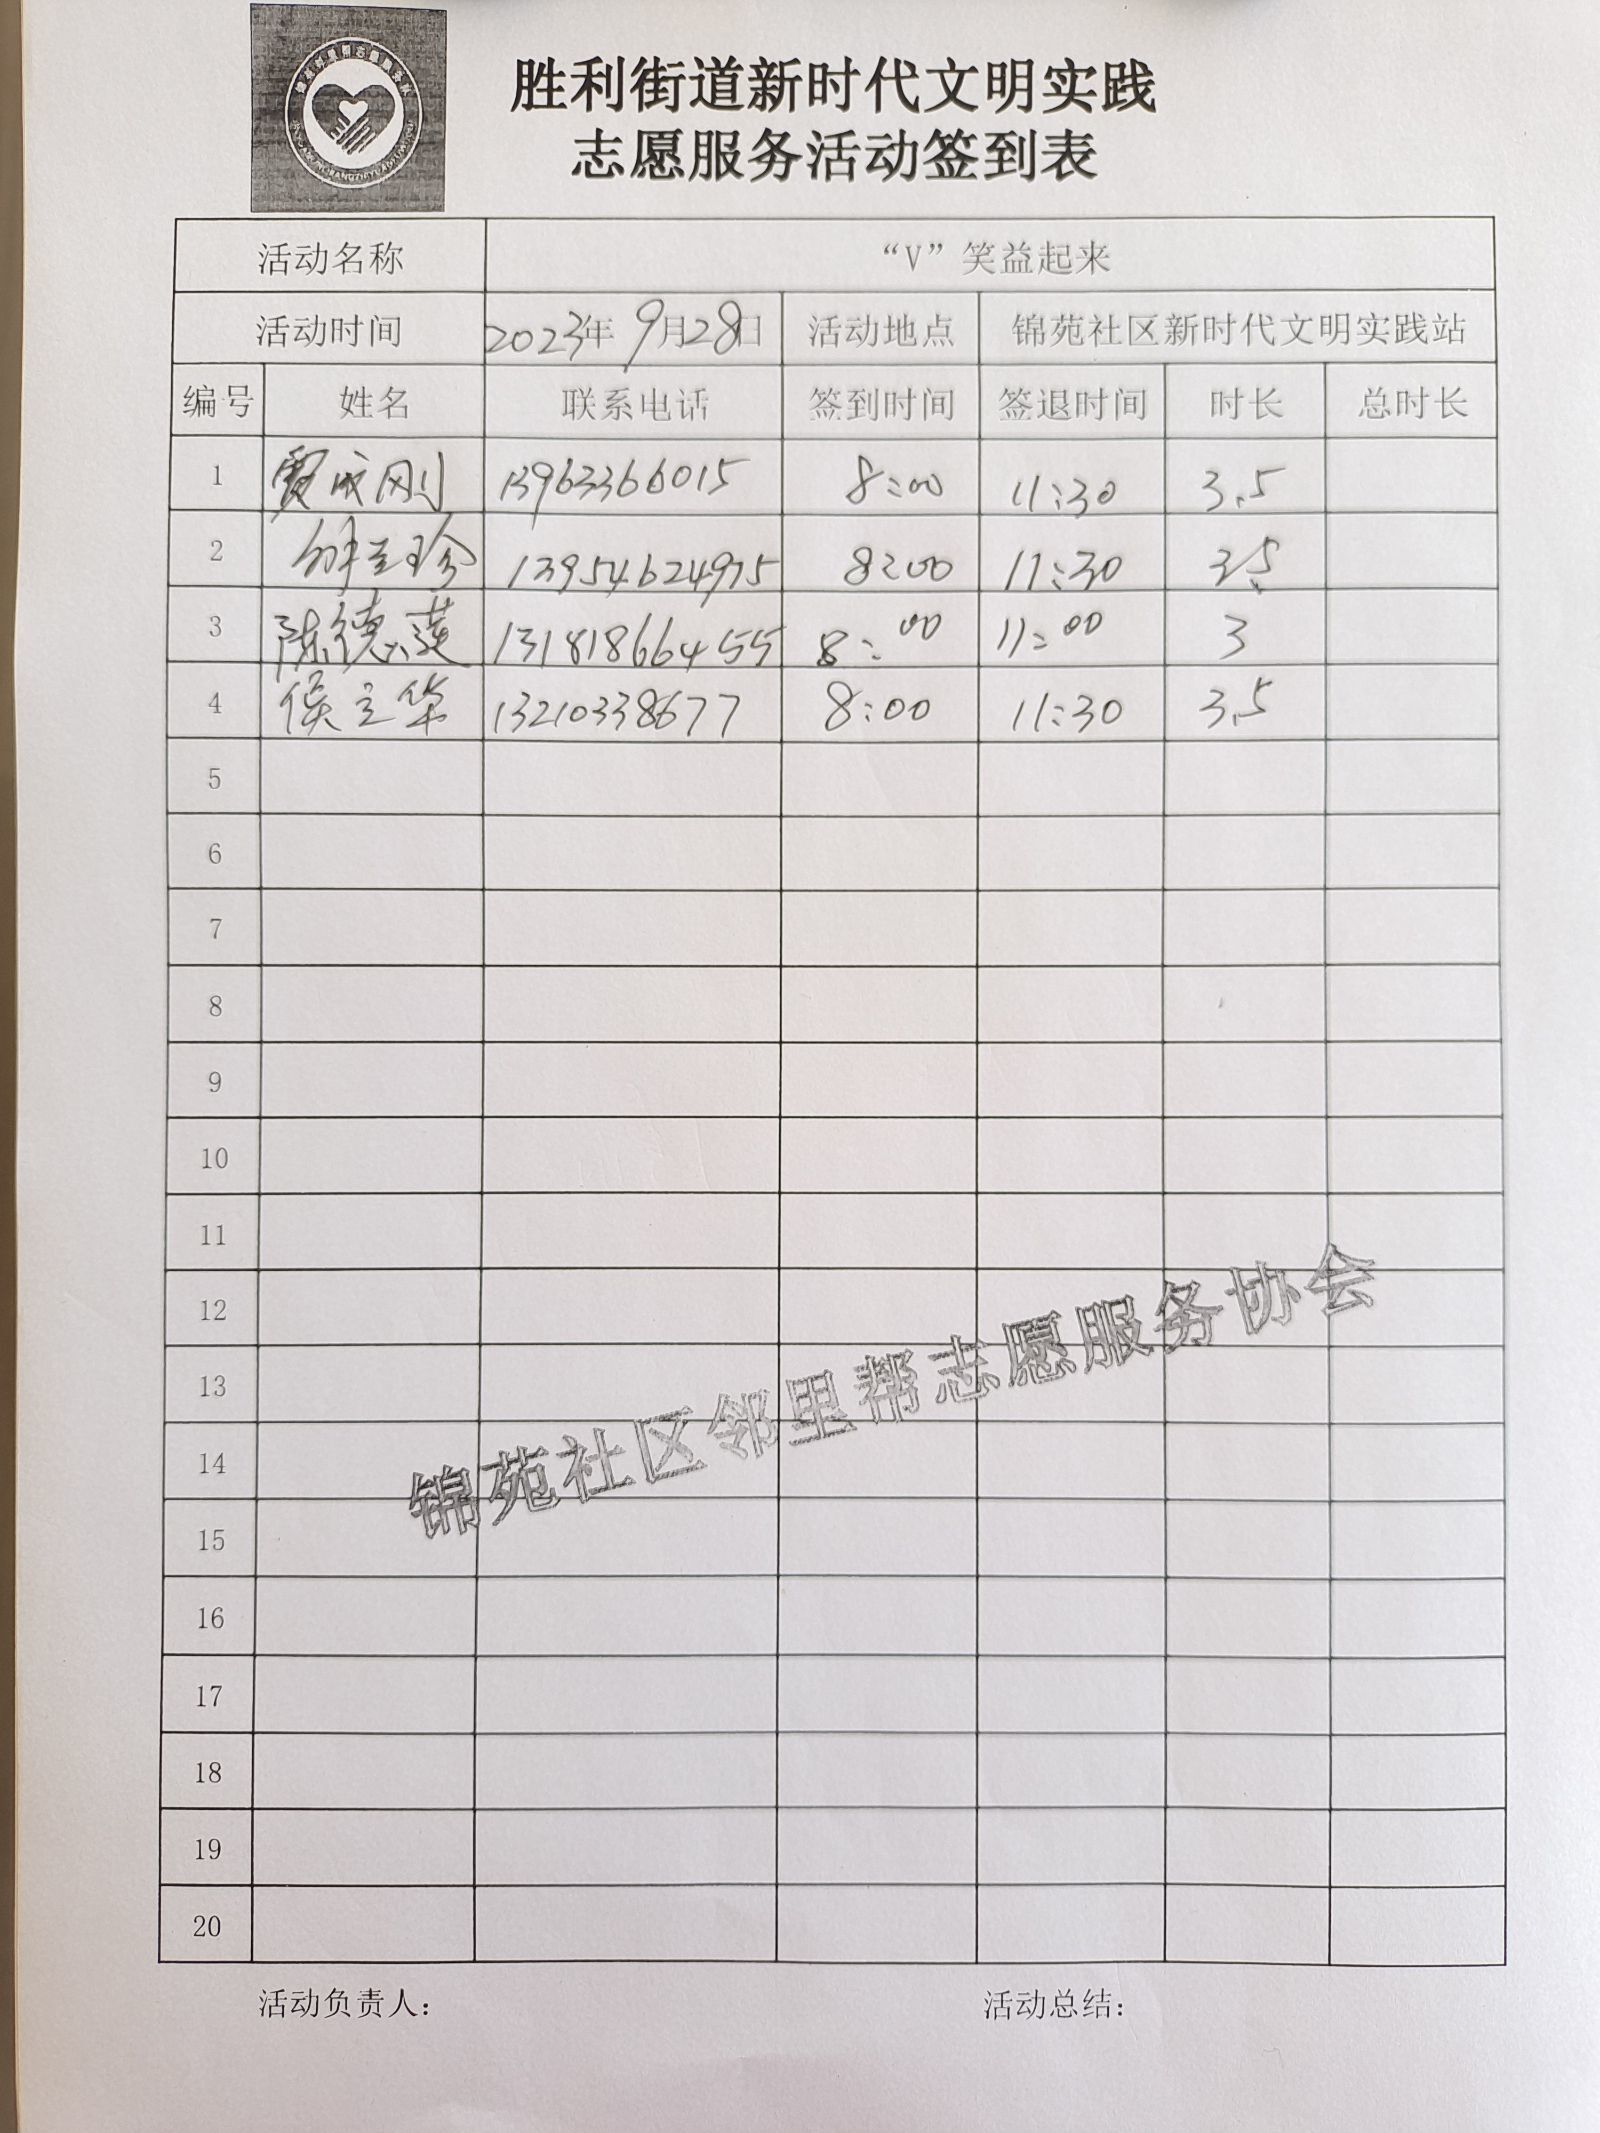 胜利街道新时代文明实践
志愿服务活动签到表
活动名称 “V”笑益起来
活动时间 2023年 9月28日 活动地点 锦苑社区新时代文明实践站
编号 姓名 联系电话 签到时间 签退时间 时长 总时长
1 贾成刚 13963366015 8:00 11:30 3.5
2 13954624975 8:00 11:30 3.5
3 陈德莲 13181866455 8:00 11:00 3
4 侯立华 13210338677 8:00 11:30 3.5
5
6
7
8
9
10
11
12
13
14
15
16
17
18
19
20
锦苑社区邻里帮志愿服务协会
活动负责人： 活动总结：